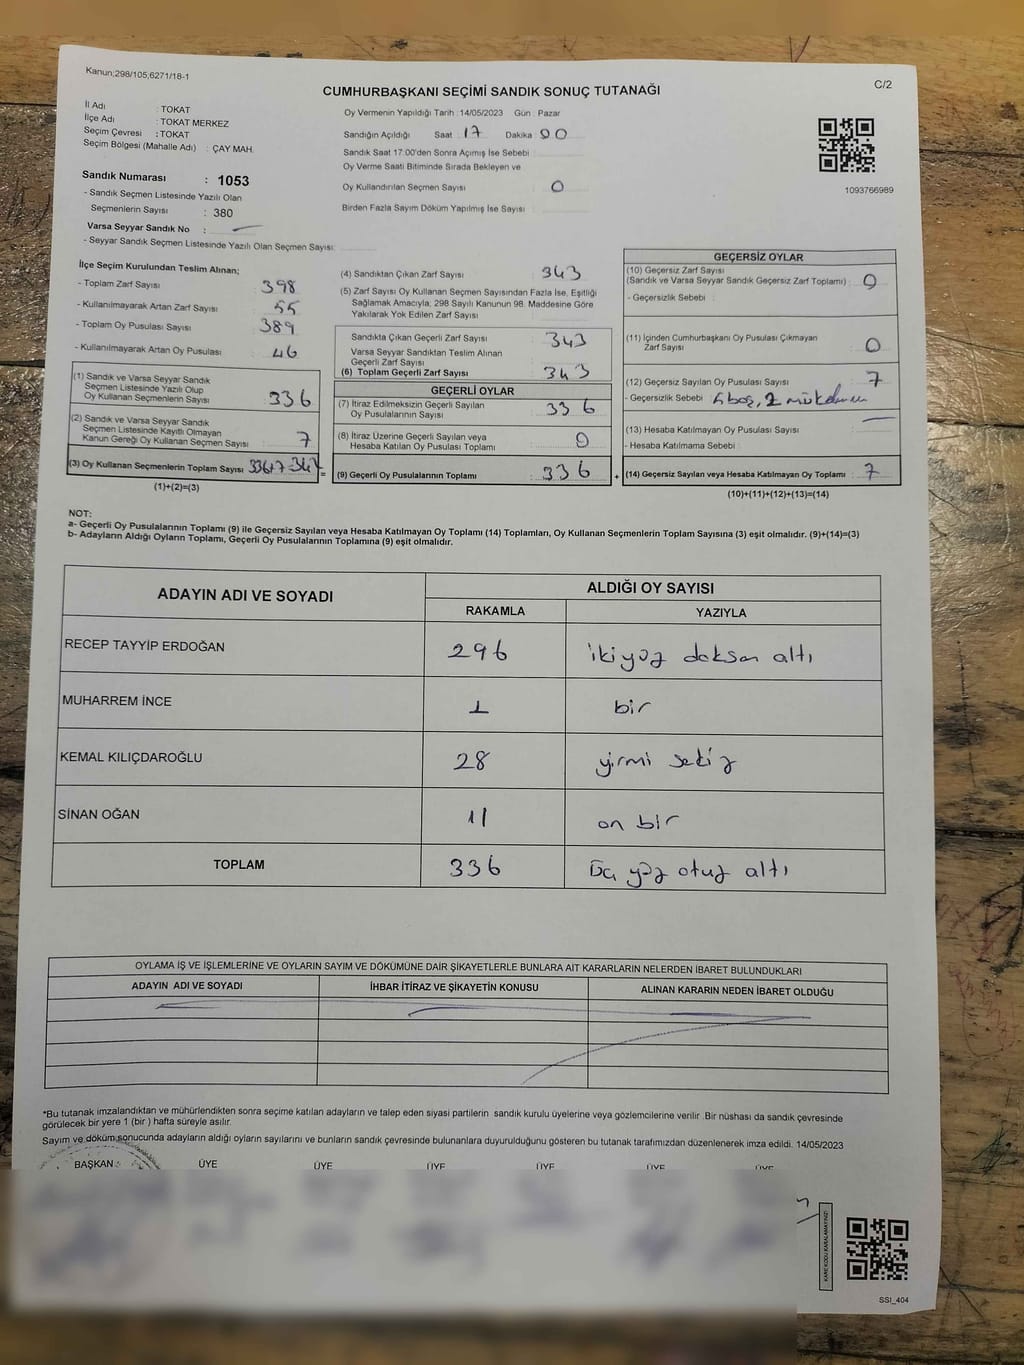 Kanun;298/105,6271/18-1
C/2
CUMHURBAŞKANI SEÇİMİ SANDIK SONUÇ TUTANAĞI
İl Adı : TOKAT
İlçe Adı : TOKAT MERKEZ
Seçim Çevresi : TOKAT
Seçim Bölgesi (Mahalle Adı) : ÇAY MAH.
Sandık Numarası : 1053
- Sandık Seçmen Listesinde Yazılı Olan
Seçmenlerin Sayısı : 380
Varsa Seyyar Sandık No :
- Seyyar Sandık Seçmen Listesinde Yazılı Olan Seçmen Sayısı:
Oy Vermenin Yapıldığı Tarih : 14/05/2023 Gün : Pazar
Sandığın Açıldığı Saat : 17 Dakika : 00
Sandık Saat 17:00'den Sonra Açımış İse Sebebi
Oy Verme Saati Bitiminde Sırada Bekleyen ve
Oy Kullandırılan Seçmen Sayısı : 0
Birden Fazla Sayım Döküm Yapılmış İse Sayısı :
1093766989
İlçe Seçim Kurulundan Teslim Alınan;
- Toplam Zarf Sayısı : 398
- Kullanılmayarak Artan Zarf Sayısı : 55
- Toplam Oy Pusulası Sayısı : 389
- Kullanılmayarak Artan Oy Pusulası : 46
(1) Sandık ve Varsa Seyyar Sandık
Seçmen Listesinde Yazılı Olup
Oy Kullanan Seçmenlerin Sayısı : 336
(2) Sandık ve Varsa Seyyar Sandık
Seçmen Listesinde Kayıtlı Olmayan
Kanun Gereği Oy Kullanan Seçmen Sayısı : 7
(3) Oy Kullanan Seçmenlerin Toplam Sayısı 336+7=343 =
(1)+(2)=(3)
(4) Sandıktan Çıkan Zarf Sayısı : 343
(5) Zarf Sayısı Oy Kullanan Seçmen Sayısından Fazla İse, Eşitliği
Sağlamak Amacıyla; 298 Sayılı Kanunun 98. Maddesine Göre
Yakılarak Yok Edilen Zarf Sayısı
Sandıkta Çıkan Geçerli Zarf Sayısı : 343
Varsa Seyyar Sandıktan Teslim Alınan
Geçerli Zarf Sayısı
(6) Toplam Geçerli Zarf Sayısı : 343
GEÇERLİ OYLAR
(7) İtiraz Edilmeksizin Geçerli Sayılan
Oy Pusulalarının Sayısı : 336
(8) İtiraz Üzerine Geçerli Sayılan veya
Hesaba Katılan Oy Pusulası Toplamı : 0
(9) Geçerli Oy Pusulalarının Toplamı : 336 +
GEÇERSİZ OYLAR
(10) Geçersiz Zarf Sayısı
(Sandık ve Varsa Seyyar Sandık Geçersiz Zarf Toplamı) : 0
- Geçersizlik Sebebi :
(11) İçinden Cumhurbaşkanı Oy Pusulası Çıkmayan
Zarf Sayısı : 0
(12) Geçersiz Sayılan Oy Pusulası Sayısı : 7
- Geçersizlik Sebebi : boş, 2
(13) Hesaba Katılmayan Oy Pusulası Sayısı :
- Hesaba Katılmama Sebebi :
(14) Geçersiz Sayılan veya Hesaba Katılmayan Oy Toplamı : 7
(10)+(11)+(12)+(13)=(14)
NOT:
a- Geçerli Oy Pusulalarının Toplamı (9) ile Geçersiz Sayılan veya Hesaba Katılmayan Oy Toplamı (14) Toplamları, Oy Kullanan Seçmenlerin Toplam Sayısına (3) eşit olmalıdır. (9)+(14)=(3)
b- Adayların Aldığı Oyların Toplamı, Geçerli Oy Pusulalarının Toplamına (9) eşit olmalıdır.
ADAYIN ADI VE SOYADI
ALDIĞI OY SAYISI
RAKAMLA YAZIYLA
RECEP TAYYİP ERDOĞAN 296 ikiyüz doksan altı
MUHARREM İNCE 1 bir
KEMAL KILIÇDAROĞLU 28 yirmi sekiz
SİNAN OĞAN 11 on bir
TOPLAM 336 üç yüz otuz altı
OYLAMA İŞ VE İŞLEMLERİNE VE OYLARIN SAYIM VE DÖKÜMÜNE DAİR ŞİKAYETLERLE BUNLARA AİT KARARLARIN NELERDEN İBARET BULUNDUKLARI
ADAYIN ADI VE SOYADI İHBAR İTİRAZ VE ŞİKAYETİN KONUSU ALINAN KARARIN NEDEN İBARET OLDUĞU
*Bu tutanak imzalandıktan ve mühürlendikten sonra seçime katılan adayların ve talep eden siyasi partilerin sandık kurulu üyelerine veya gözlemcilerine verilir .Bir nüshası da sandık çevresinde
görülecek bir yere 1 (bir ) hafta süreyle asılır.
Sayım ve döküm sonucunda adayların aldığı oyların sayılarını ve bunların sandık çevresinde bulunanlara duyurulduğunu gösteren bu tutanak tarafımızdan düzenlenerek imza edildi. 14/05/2023
BAŞKAN ÜYE ÜYE ÜYE ÜYE ÜYE ÜYE
KARE KODU KARALAMAYINIZ!
SSI_404